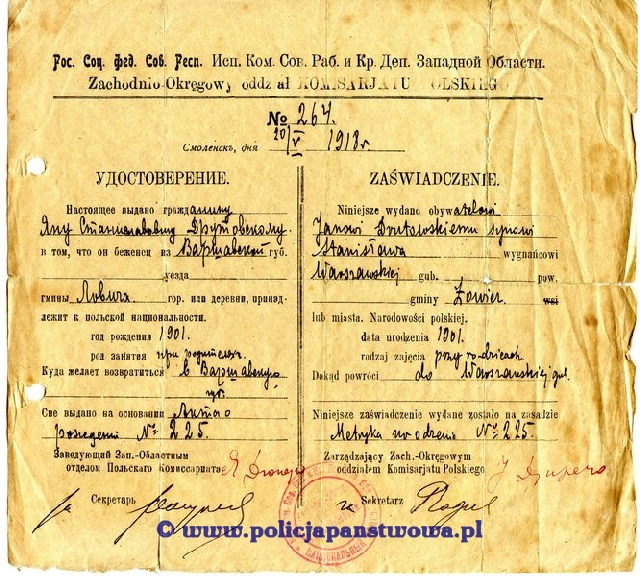 Рос. Соц. Фед. Сов. Респ. Исп. Ком. Сов. Раб. и Кр. Деп. Западной Области.
Zachodnio-Okręgowy oddział KOMISARJATU POLSKIEGO
№ 264.
Смоленскъ, дня 20/V 1918 г.
УДОСТОВЕРЕНИЕ.
Настоящее выдано гражданину
Яну Станиславовичу Друтовскому
в том, что он беженец из Варшавской губ.
уезда
гмины Лович гор. изи деревни, принад-
лежит к польской национальности.
год рождения 1901.
род занятия при родителях.
Куда желает возвратиться в Варшавскую
губ.
Сие выдано на основании
рождения № 225.
Заведующий Зап.-Областным
отделом Польского Комиссариата
Секретарь
ZAŚWIADCZENIE.
Niniejsze wydano obywatelowi
Janowi Drutowskiemu synowi
Stanisława wygnańcowi
Warszawskiej gub. pow.
gminy Łowicz wsi
lub miasta. Narodowości polskiej.
data urodzenia 1901.
rodzaj zajęcia przy rodzicach.
Dokąd powróci do Warszawskiej gub.
Niniejsze zaświadczenie wydane zostało na zasadzie
Metryka urodzenia № 225.
Zarządzający Zach.-Okręgowym
oddziałem Komisarjatu Polskiego
za Sekretarz
© www.policjapanstwowa.pl